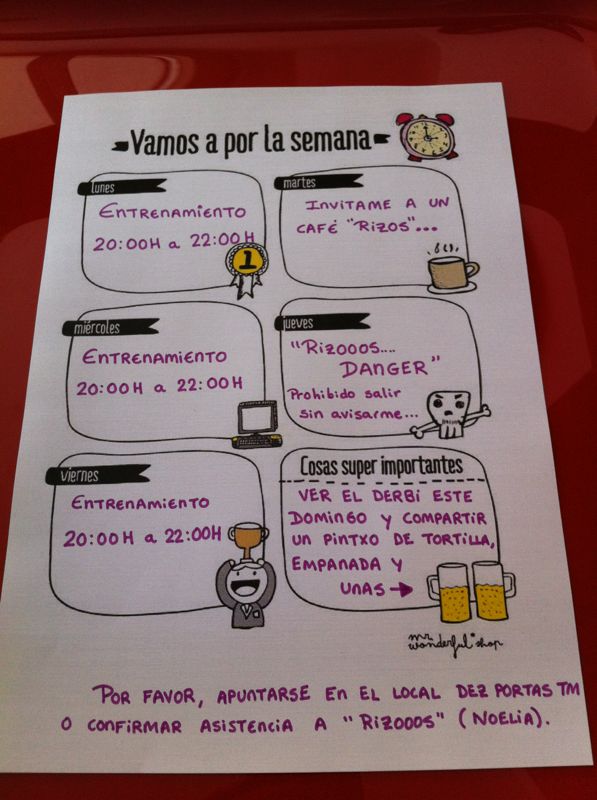 Vamos a por la semana
lunes
ENTRENAMIENTO
20:00H a 22:00H
1
martes
INVITAME A UN
CAFÉ "RIZOS"...
miércoles
ENTRENAMIENTO
20:00H a 22:00H
jueves
"RIZOOOS....
DANGER"
Prohibido salir
sin avisarme...
viernes
ENTRENAMIENTO
20:00H a 22:00H
Cosas super importantes
VER EL DERBI ESTE
DOMINGO Y COMPARTIR
UN PINTXO DE TORTILLA,
EMPANADA Y
UNAS →
mr.
wonderful* shop
POR FAVOR, APUNTARSE EN EL LOCAL DEZ PORTAS TM
O CONFIRMAR ASISTENCIA A "RIZOOOS" (NOELIA).